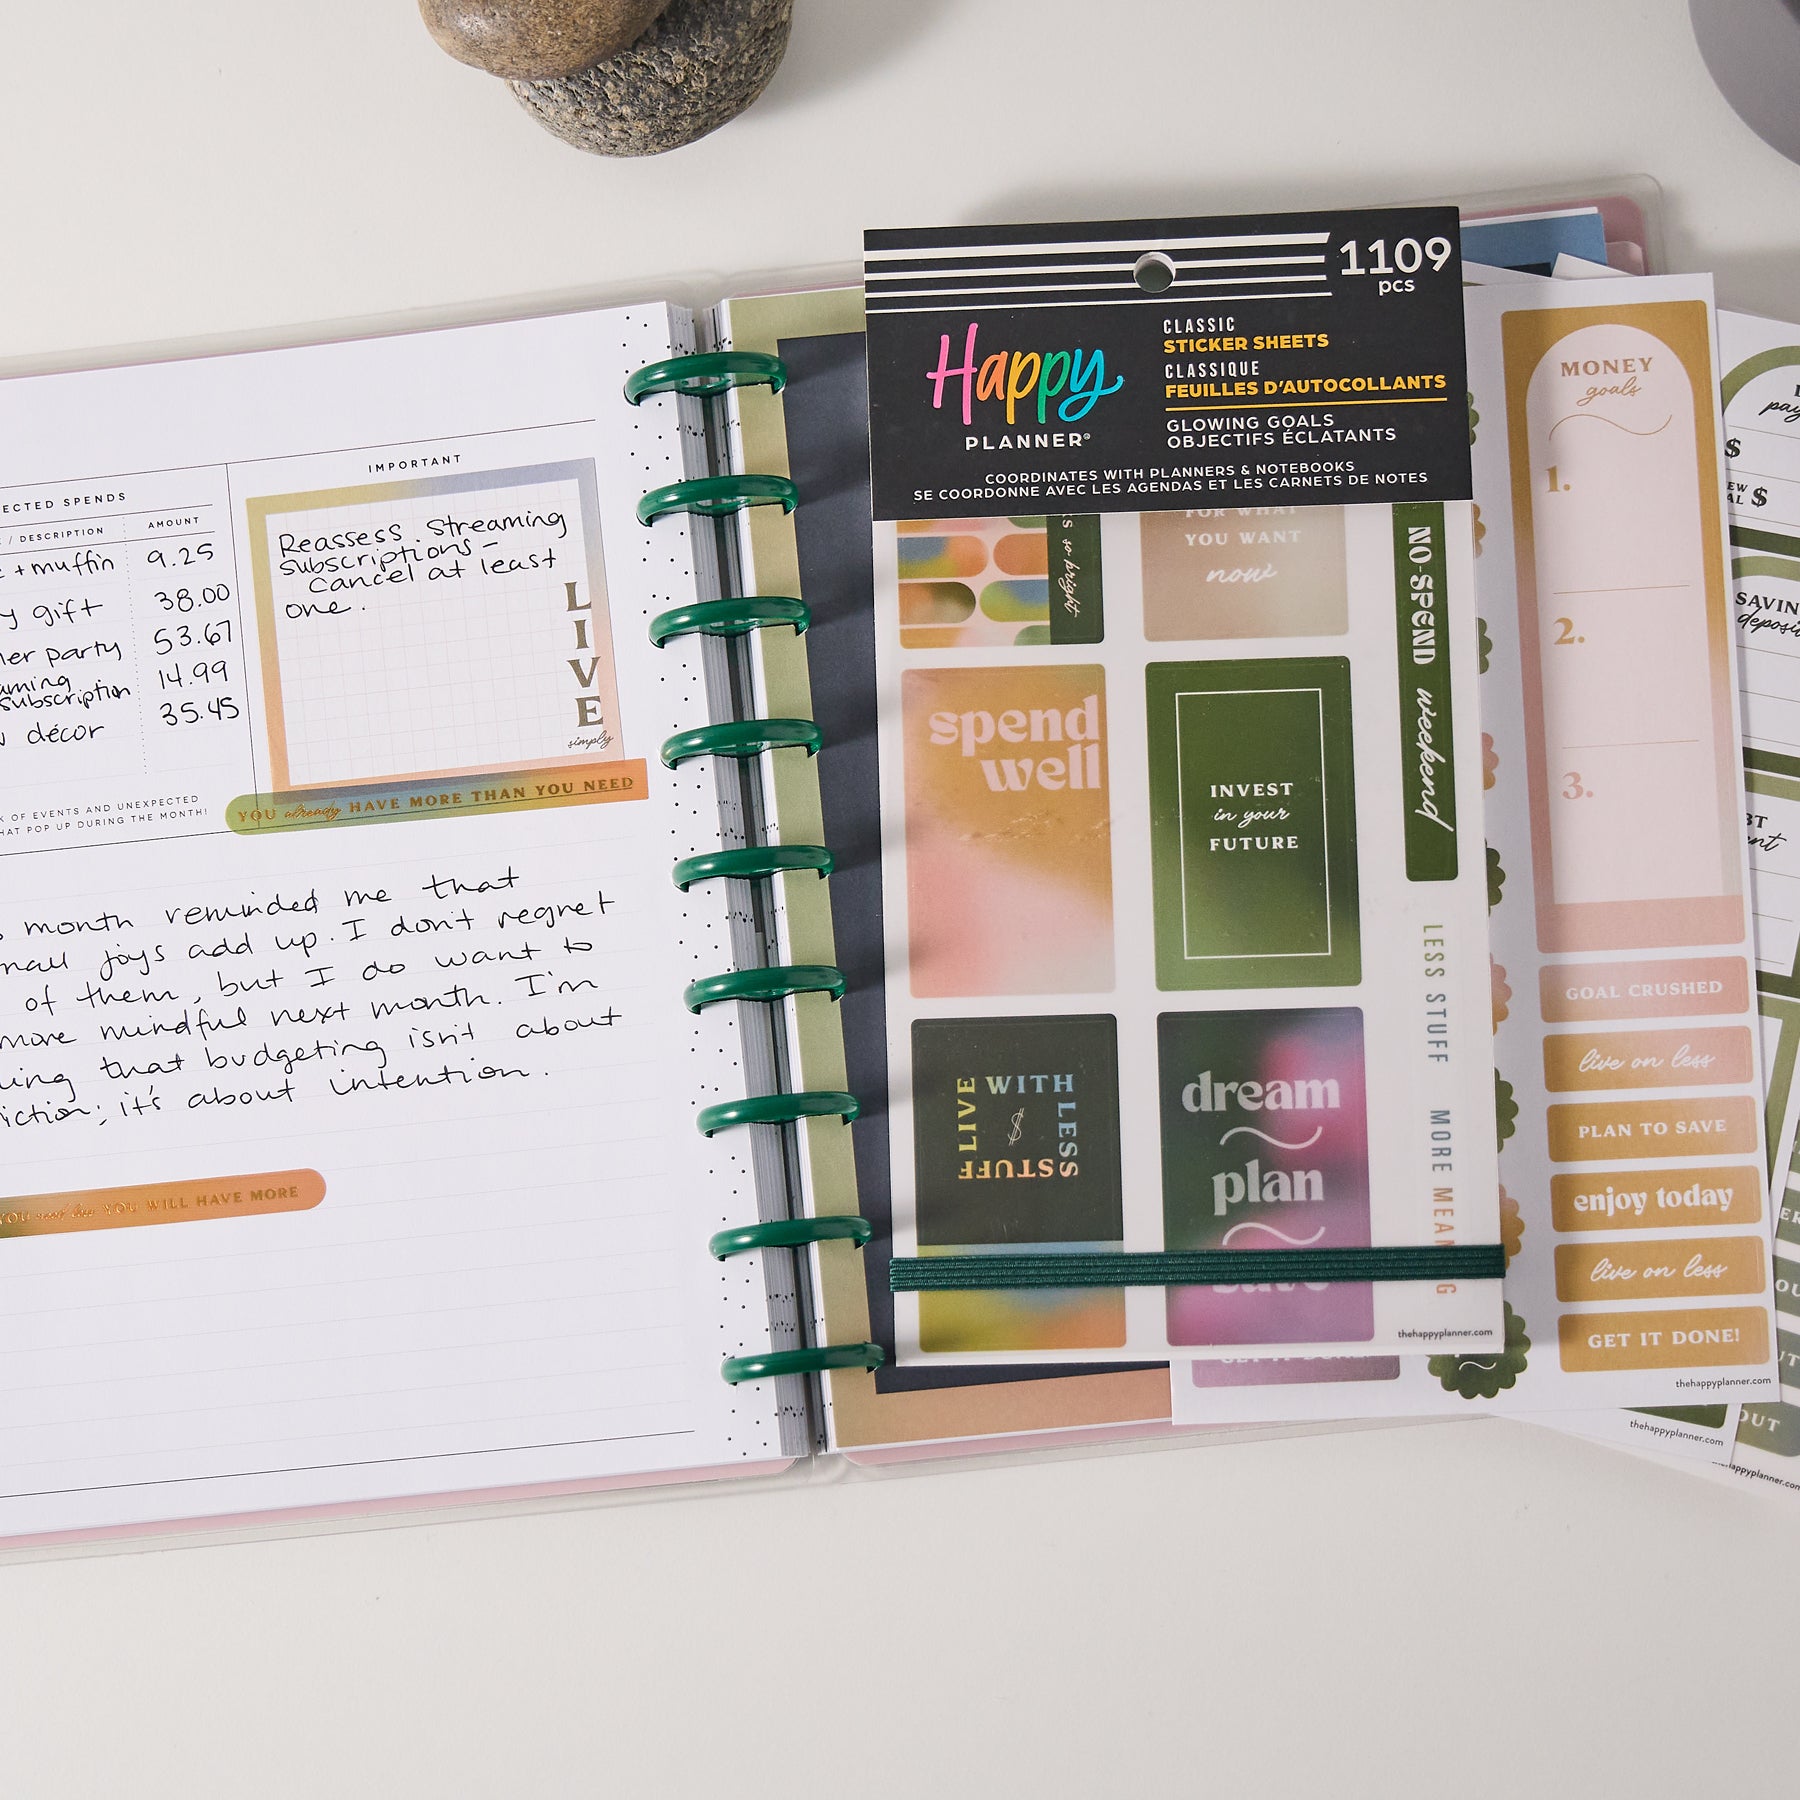 IMPORTANT
ECTED SPENDS
/ DESCRIPTION AMOUNT
+ muffin 9.25
gift 38.00
party 53.67
subscription 14.99
décor 35.45
Reassess streaming
subscriptions -
Cancel at least
one.
LIVE
simply
YOU already HAVE MORE THAN YOU NEED
OF EVENTS AND UNEXPECTED
HAT POP UP DURING THE MONTH!
month reminded me that
joys add up. I don't regret
of them, but I do want to
more mindful next month. I'm
that budgeting isn't about
it's about intention.
YOU need less YOU WILL HAVE MORE
1109
pcs
Happy
PLANNER®
CLASSIC
STICKER SHEETS
CLASSIQUE
FEUILLES D'AUTOCOLLANTS
GLOWING GOALS
OBJECTIFS ÉCLATANTS
COORDINATES WITH PLANNERS & NOTEBOOKS
SE COORDONNE AVEC LES AGENDAS ET LES CARNETS DE NOTES
so bright
FOR WHAT
YOU WANT
now
NO SPEND weekend
spend
well
INVEST
in your
FUTURE
LIVE WITH LESS STUFF
$
dream
plan
save
LESS STUFF MORE MEANING
thehappyplanner.com
GET IT DONE!
MONEY
goals
1.
2.
3.
GOAL CRUSHED
live on less
PLAN TO SAVE
enjoy today
live on less
GET IT DONE!
thehappyplanner.com
thehappyplanner.com
$
$
SAVIN
OUT
happyplanner.com